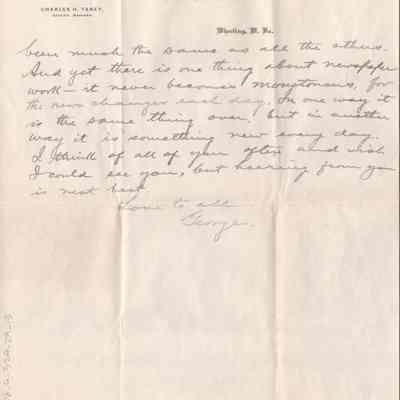 CHARLES H. TANEY,
Wheeling, W. Va.
been much the same as all the others.
And yet there is one thing about newspaper
work — it never becomes monotonous, for
the news changes each day. In one way it
is the same thing over, but in another
way it is something new every day.
I think of all of you often and wish
I could see you, but hearing from you
is next best.
Love to all
George.